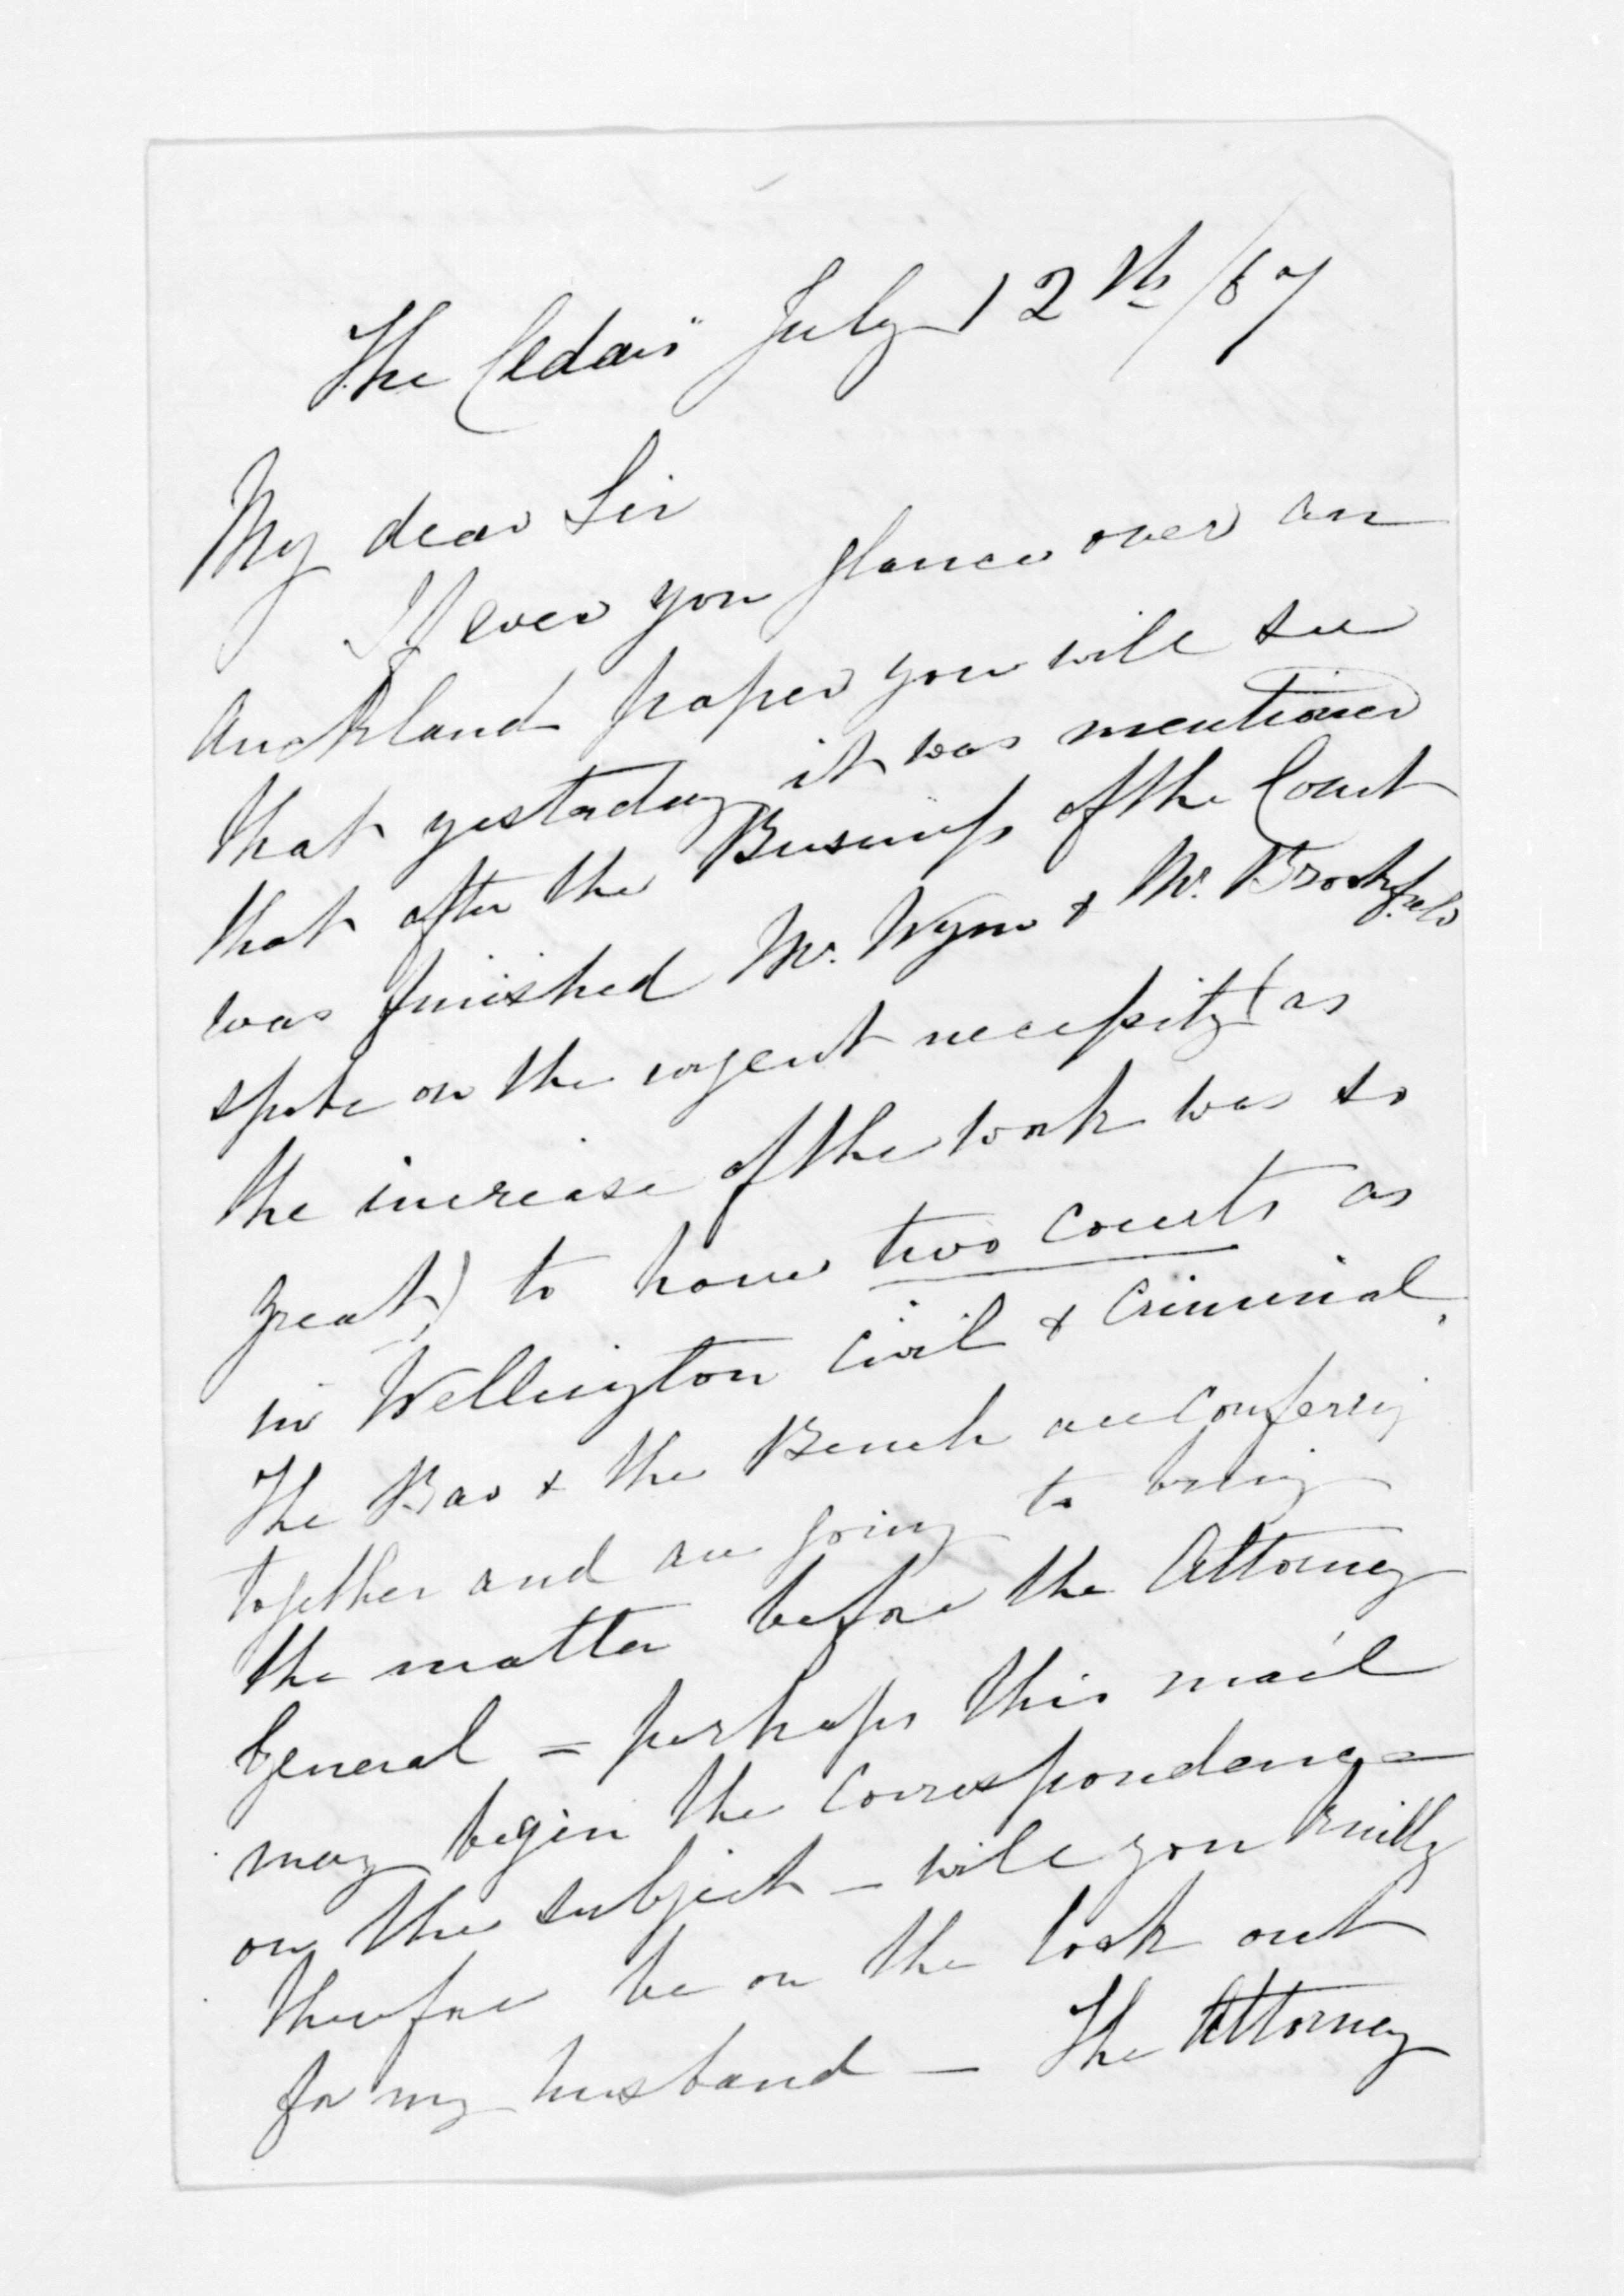 The Cedars" July 12th/67
My dear Sir
If ever you glance over an
Auckland paper you will see
that yesterday it was mentioned
that after the Business of the Court
was finished Mr. Wynn & Mr. Brookfield
spoke on the urgent necessity (as
the increase of the work was so
great) to have two courts as
in Wellington Civil & Criminal.
The Bar & the Bench are conferring
together and are going to bring
the matter before the Attorney
General = perhaps this mail
may begin the correspondence
on the subject - will you kindly
therefore be on the look out
for my husband - The Attorney